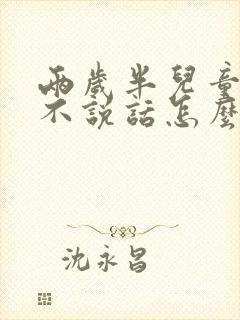 兩歲半兒童
不說話怎麼
沈永昌